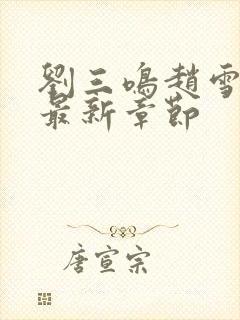 劉三鳴趙雪
最新章節
唐宣宗